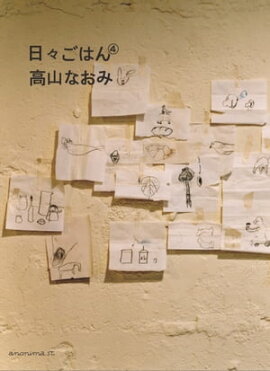 日々ごはん④
高山なおみ
anonima st.